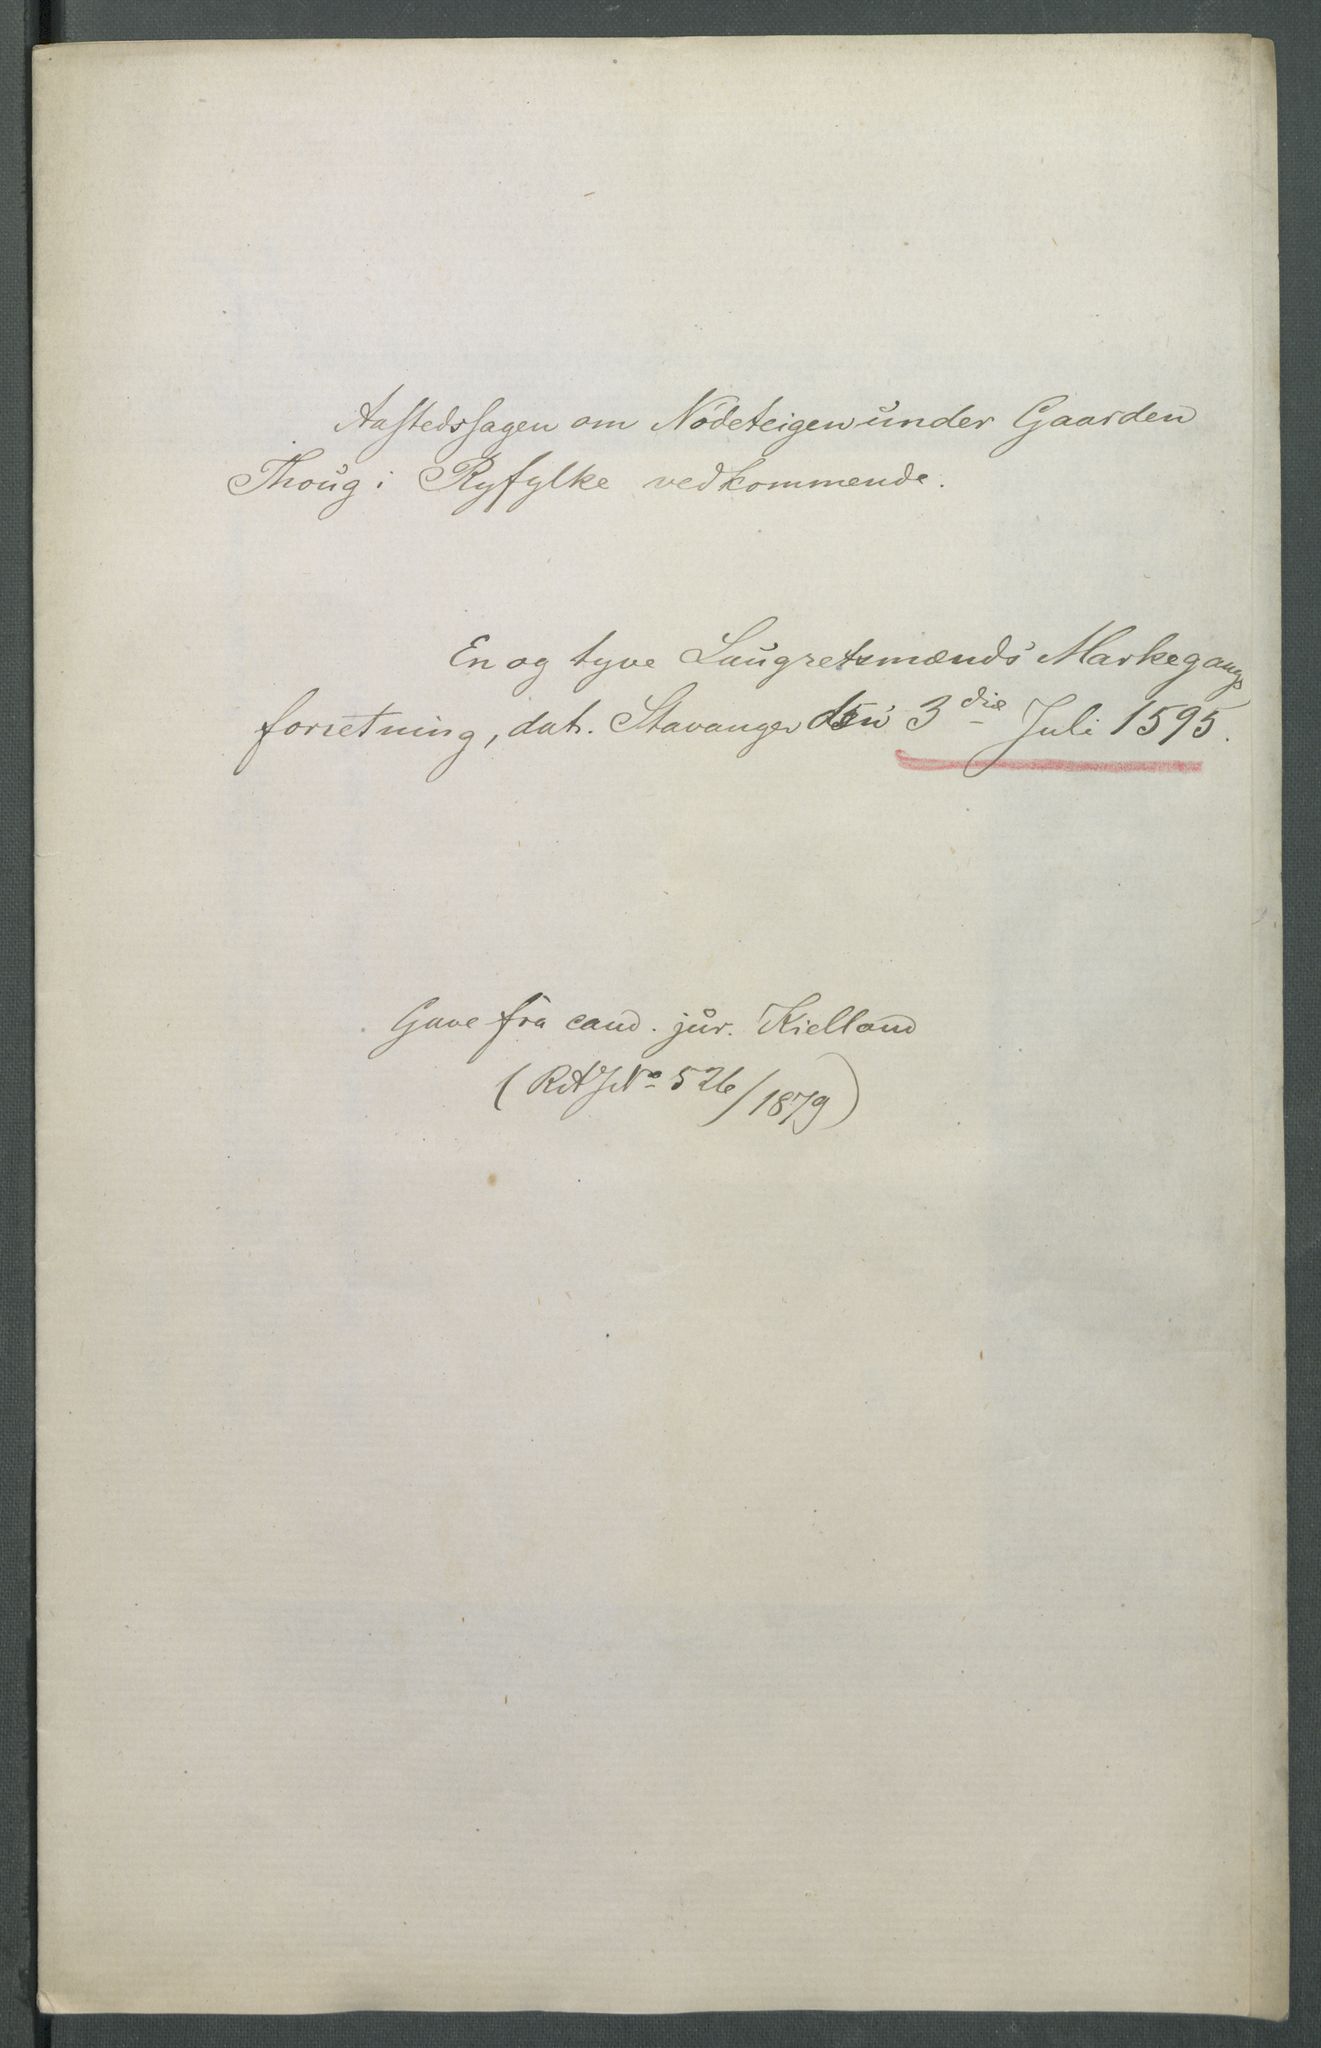 Aastedssagen om Nödeteigen under Gaarden
Thoug i Ryfylke vedkommende.
En og tyve Laugretsmænds Markegangs
forretning, dat. Stavanger den 3die Juli 1595.
Gave fra cand. jur. Kielland
(RA J No 526/1879)